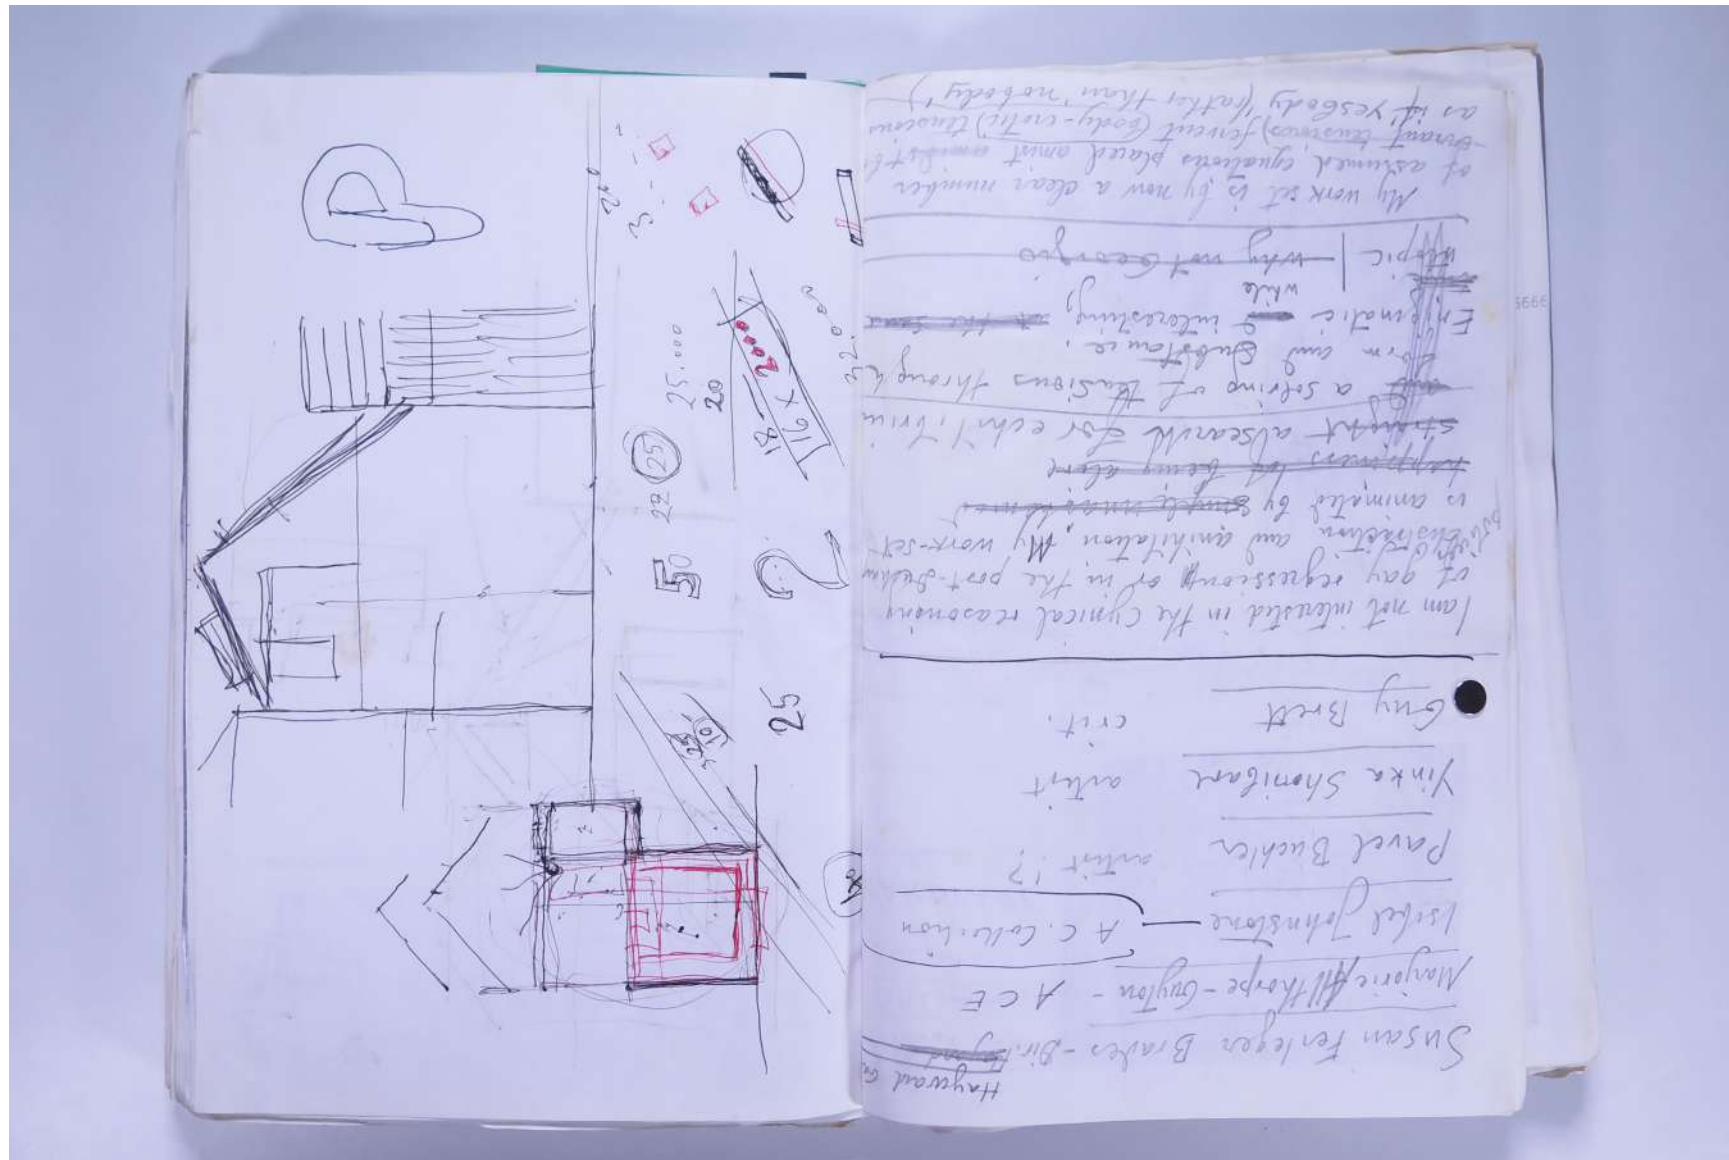 Hayward
Susan Ferleger Brades - Dir.
Marjorie Allthorpe-Guyton - ACE
Isobel Johnstone — A.C. Collection
Pavel Büchler artist !?
Yinka Shonibare artist
Guy Brett crit.
I am not interested in the cynical reasoning
of gay regression or in the post-
and anihilation, My work-set
is animated by
happiness of being alive
straight absearch for echilibrium
a solving of tensions through a
form and substance.
Enigmatic interesting,
while
why not Georgio
My work set is by now a clear number
of assumed equations placed amist
tensions) fervent (body-erotic) tensions
as if 'yesbody' (rather than 'nobody')
200
3 -
25.000
20
22 25
50
2
25
18
2000
16 x
32.000